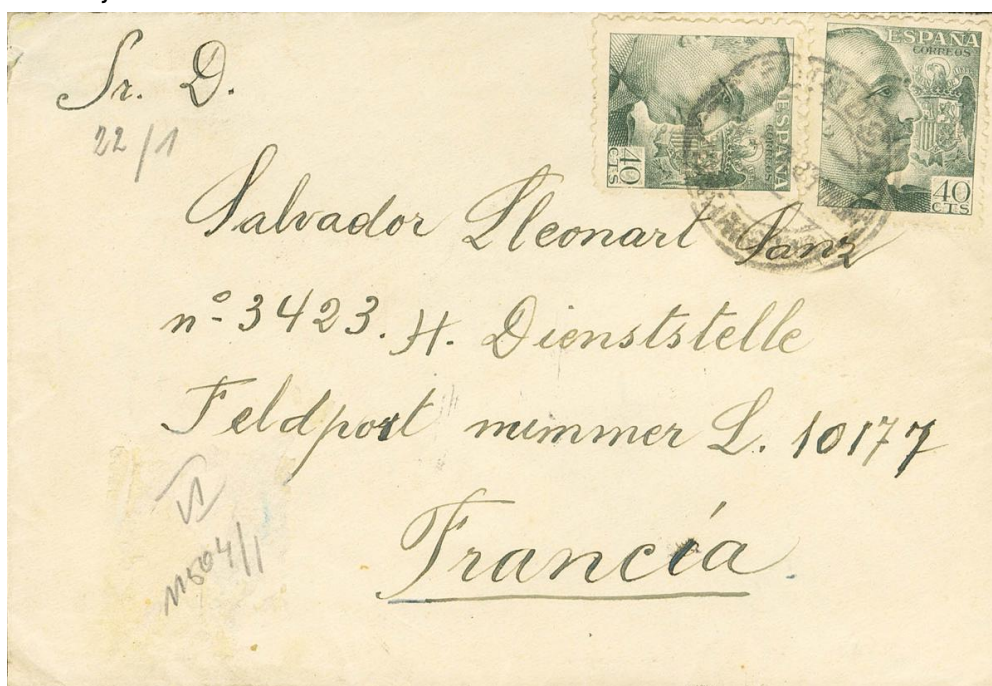 ESPAÑA
CORREOS
40
CTS
ESPAÑA
CORREOS
40
CTS
Sr. D.
22/1
Salvador Lleonart Sanz
nº 3423. H. Dienststelle
Feldport nummer L. 10177
Francia.
VI